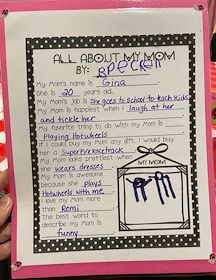 ALL ABOUT MY MOM
BY: BECKETT
My Mom's name is Gina
She is 20 years old.
My Mom's Job is She goes to school to teach kids
My Mom is happiest when I laugh at her
and tickle her
My favorite thing to do with my Mom is
Playing Hotwheels
If I could buy my Mom any gift, I would buy
her a Super Fire Racetrack
My Mom looks prettiest when
she wears dresses
My Mom is awesome
because she plays
Hotwheels with me
I love my Mom more
than Remi
The best word to
describe my Mom is
funny
MY MOM